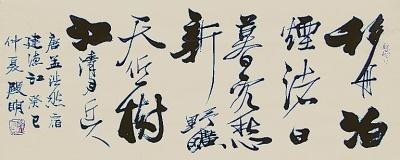 移舟泊
煙渚日
暮客愁
新野曠
天低樹
江清月近人
唐孟浩然宿
建德江癸巳
仲夏殿明